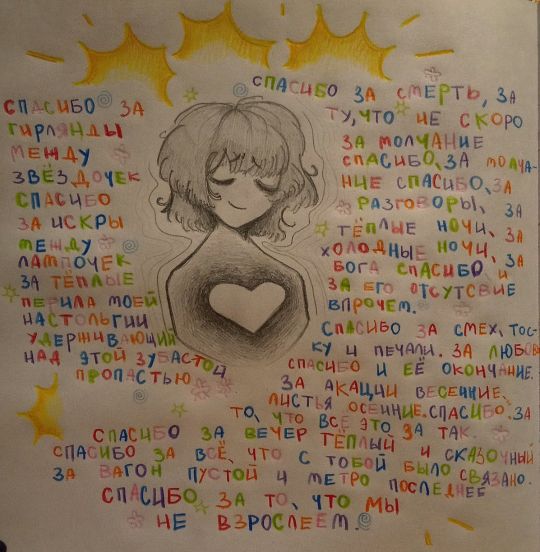 СПАСИБО ЗА
ГИРЛЯНДЫ
МЕЖДУ
ЗВЁЗДОЧЕК
СПАСИБО
ЗА ИСКРЫ
МЕЖДУ
ЛАМПОЧЕК
ЗА ТЁПЛЫЕ
ПЕРИЛА МОЕЙ
НАСТОЛЬГИИ
УДЕРЖИВАЮЩИЙ
НАД ЭТОЙ ЗУБАСТОЙ
ПРОПАСТЬЮ
СПАСИБО ЗА СМЕРТЬ, ЗА
ТУ, ЧТО НЕ СКОРО
ЗА МОЛЧАНИЕ
СПАСИБО, ЗА МОЛЧА-
НИЕ СПАСИБО, ЗА
РАЗГОВОРЫ, ЗА
ТЁПЛЫЕ НОЧИ, ЗА
ХОЛОДНЫЕ НОЧИ, ЗА
БОГА СПАСИБО И
ЗА ЕГО ОТСУТСВИЕ
ВПРОЧЕМ.
СПАСИБО ЗА СМЕХ, ТОС-
КУ И ПЕЧАЛИ. ЗА ЛЮБОВЬ
СПАСИБО И ЕЁ ОКОНЧАНИЕ.
ЗА АКАЦИИ ВЕСЕННИЕ,
ЛИСТЬЯ ОСЕННИЕ. СПАСИБО ЗА
ТО, ЧТО ВСЁ ЭТО ЗА ТАК.
СПАСИБО ЗА ВЕЧЕР ТЁПЛЫЙ И СКАЗОЧНЫЙ
СПАСИБО ЗА ВСЁ, ЧТО С ТОБОЙ БЫЛО СВЯЗАНО.
ЗА ВАГОН ПУСТОЙ И МЕТРО ПОСЛЕДНЕЕ
СПАСИБО ЗА ТО, ЧТО МЫ
НЕ ВЗРОСЛЕЕМ.